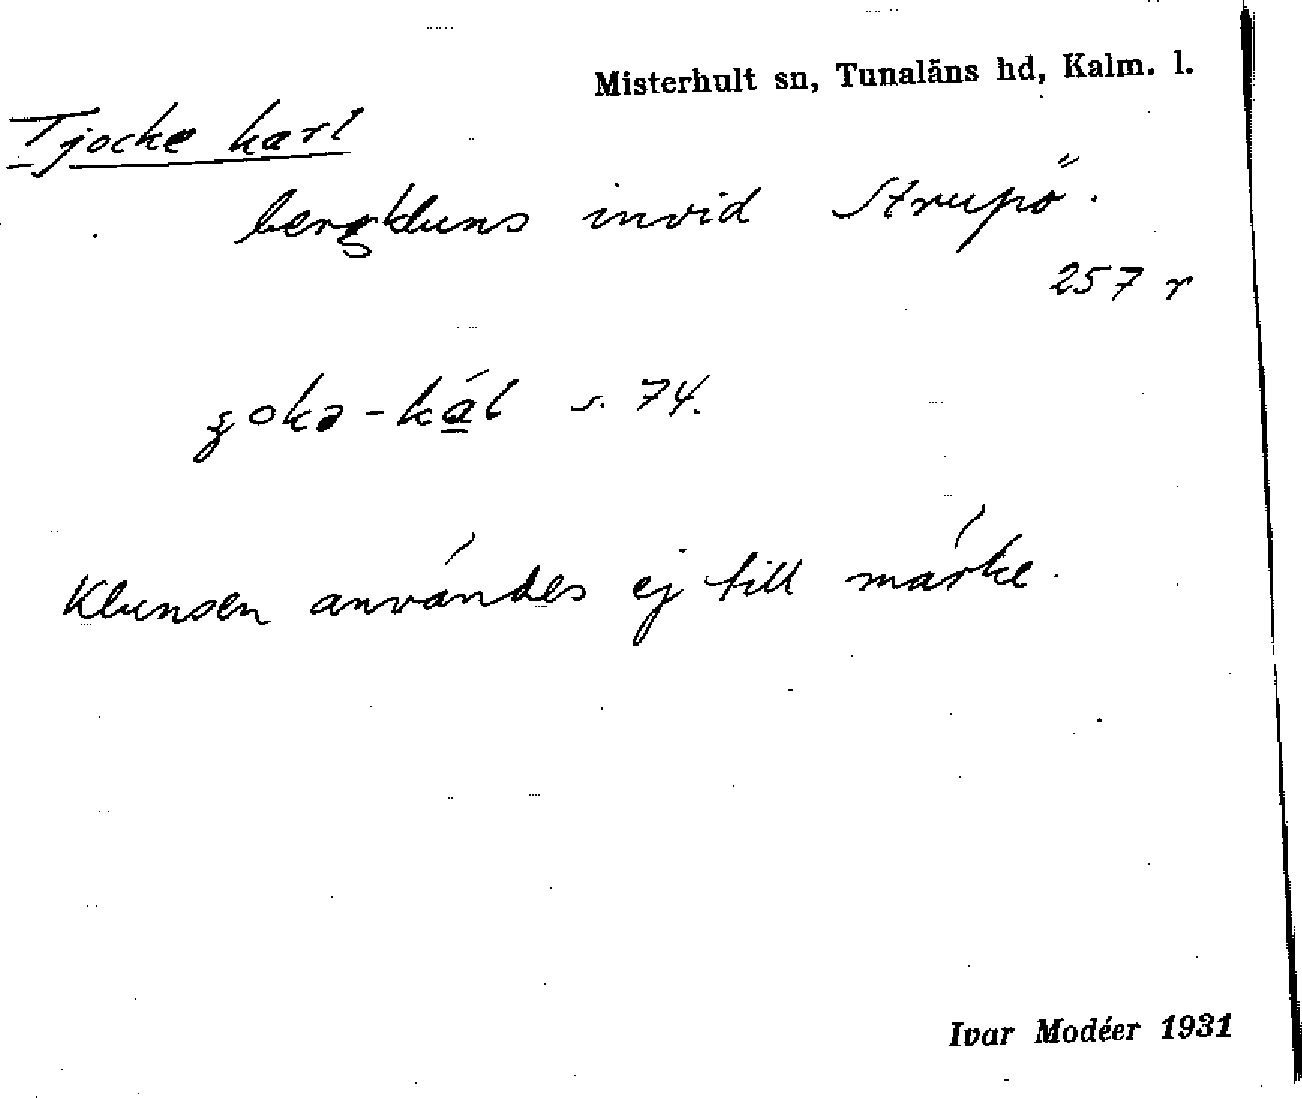 Misterhult sn, Tunaläns hd, Kalm. l.
Tjocke karl
bergkluns invid Strupö.
257 r
s. 74.
Klunsen användes ej till märke.
Ivar Modéer 1931